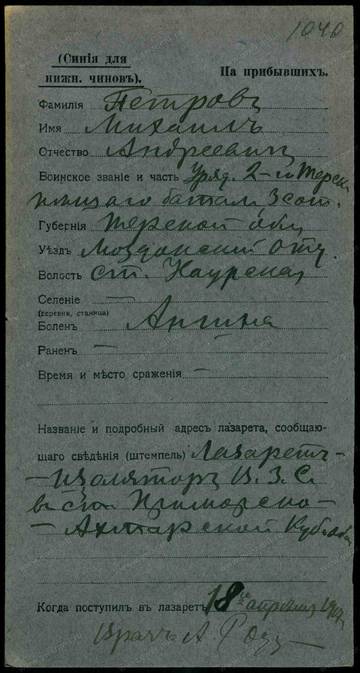 1040
(Синія для
нижн. чиновъ).
На прибывшихъ.
Фамилія Петровъ
Имя Михаилъ
Отчество Андреевичъ
Воинское званіе и часть Уряд. 2-го Терск.
баталі 3 сот.
Губернія Терской обл
Уѣздъ Моздокскій отд.
Волость ст. Наурская
Селеніе —
(деревня, станица)
Боленъ Ангина
Раненъ —
Время и мѣсто сраженія —
Названіе и подробный адресъ лазарета, сообщаю-
щаго свѣдѣнія (штемпель) Лазаретъ-
-Изоляторъ В. З. С.
въ ст. Приморско-
-Ахтарской Куб. обл
Когда поступилъ въ лазаретъ 18 апрѣля
Врачъ А.